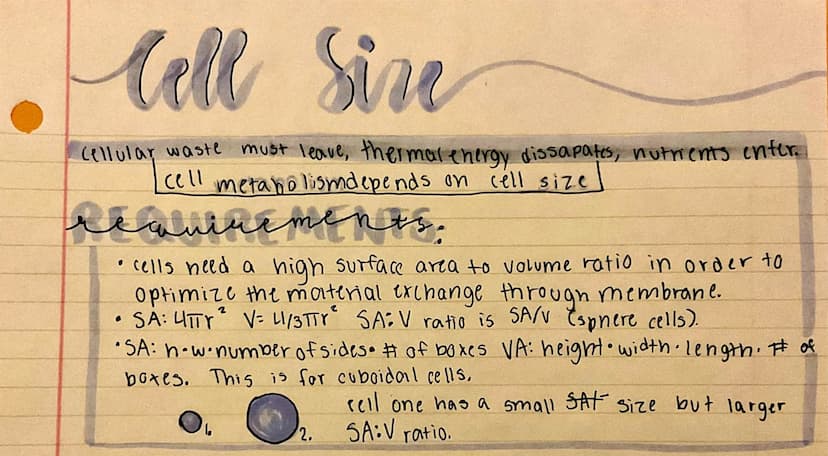 Cell Size
cellular waste must leave, thermal energy dissapates, nutrients enter.
cell metabolism depends on cell size
REQUIREMENTS
requirements:
• cells need a high surface area to volume ratio in order to
optimize the material exchange through membrane.
• SA: 4πr² V= 4/3πr² SA:V ratio is SA/V (sphere cells).
• SA: h·w·number of sides· # of boxes VA: height·width·length· # of
boxes. This is for cuboidal cells.
1. 2. cell one has a small SA size but larger
SA:V ratio.